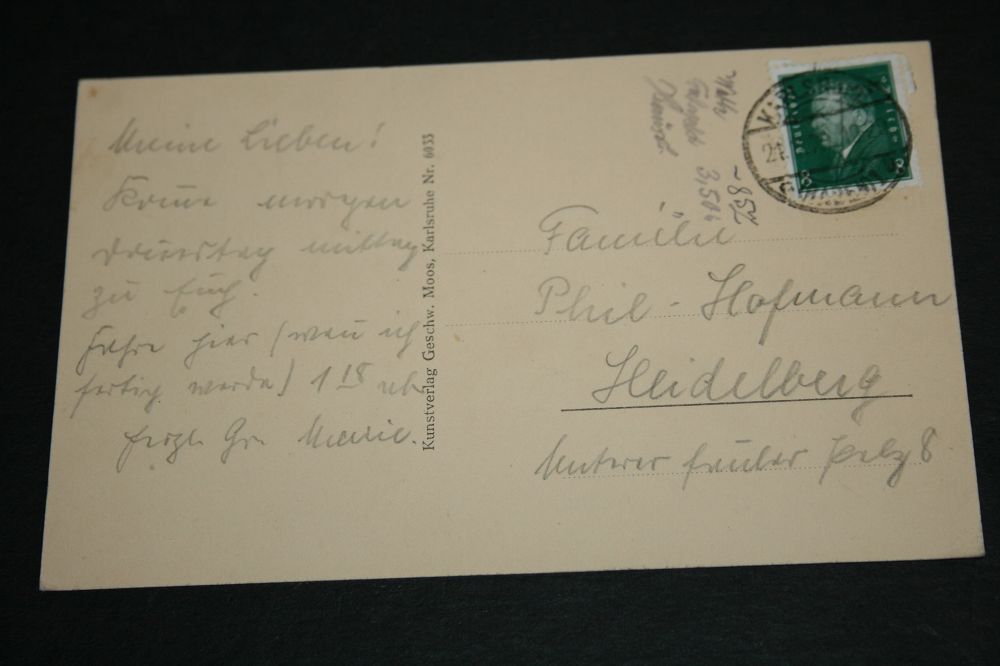 Meine Lieben!
Komme morgen
Donnerstag mittag
zu Euch.
Fahre hier (wenn ich
fertig werde) 1 18 ab
herzl. Gr. Marie.
Kunstverlag Geschw. Moos, Karlsruhe Nr. 6033
3,50
-85
KARLSRUHE
8 8
Familie
Phil. Hofmann
Heidelberg
Unterer fauler Pelz 8